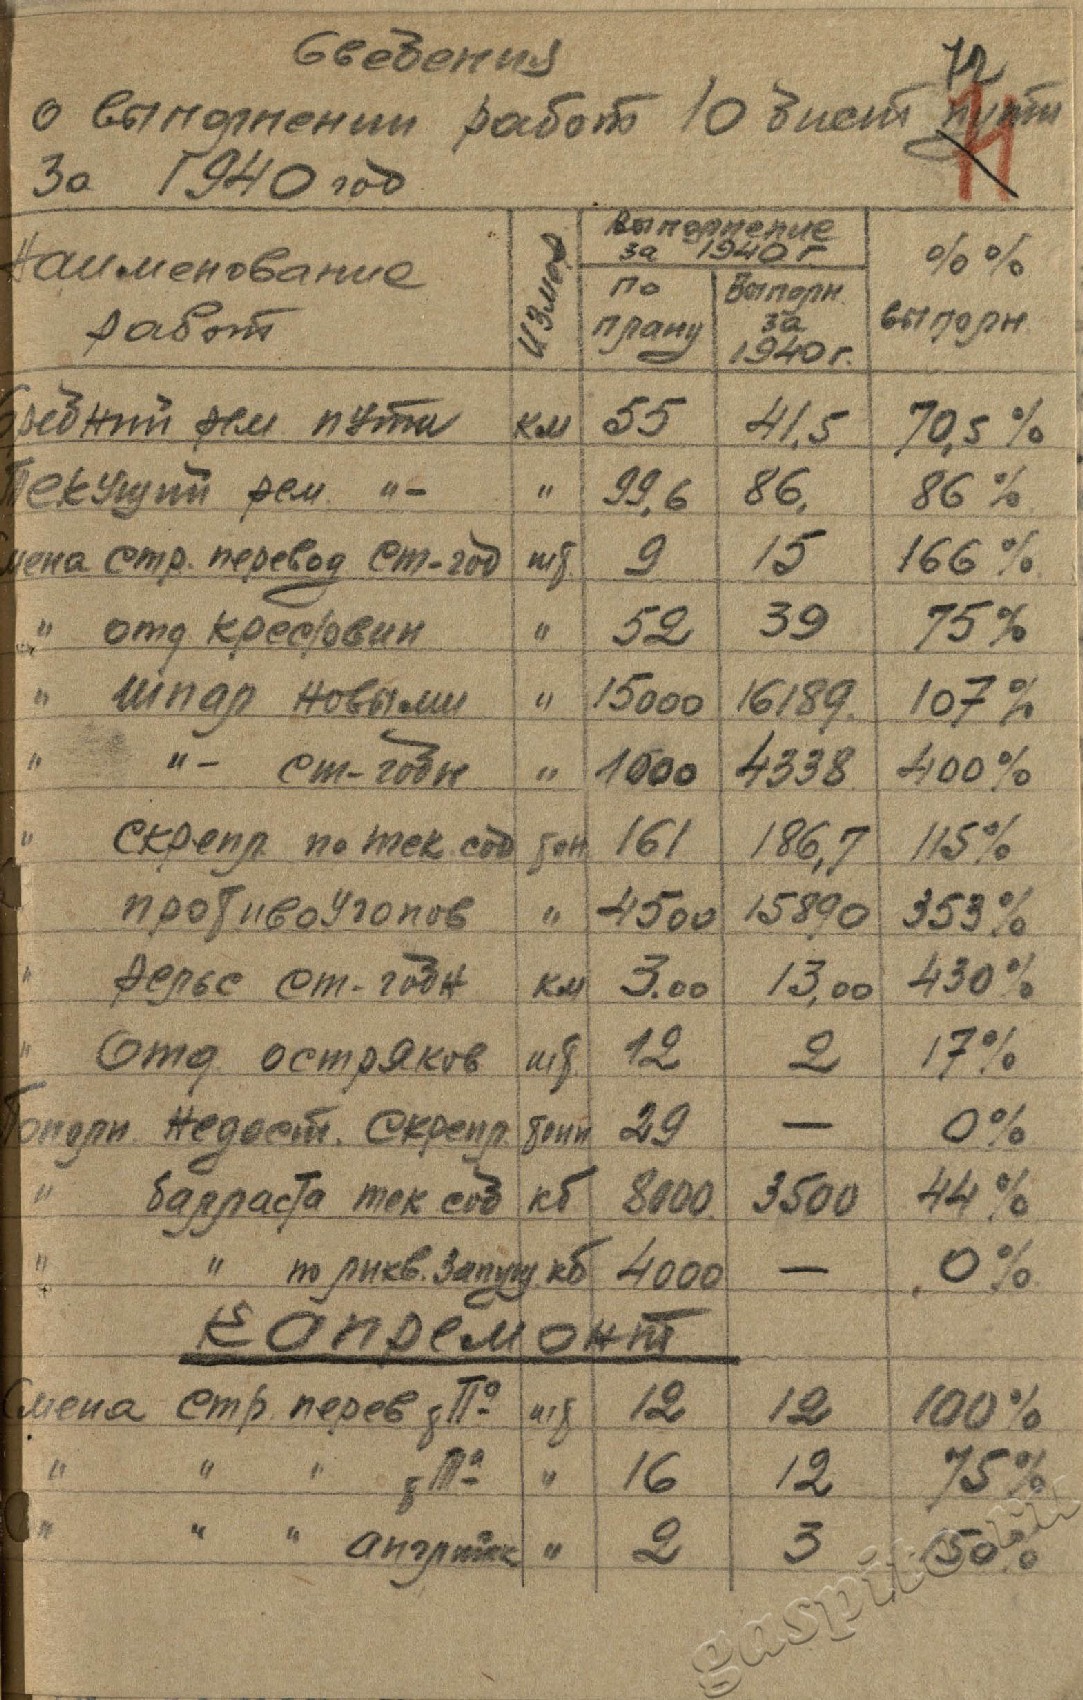 Сведения
72
о выполнении работ 10 дист пути
71
За 1940 год
Наименование работ
Измер
Выполнение за 1940 г.
По плану
Выполн за 1940 г.
% % выполн.
Средний рем. пути км 55 41,5 70,5%
Текущий рем. "- " 99,6 86, 86%
Смена стр. перевод ст-год шт. 9 15 166%
" отд крестовин " 52 39 75%
" шпал новыми " 15000 16189. 107%
" "- ст-годн " 1000 4338 400%
" скрепл по тек. сод тон 161 186,7 115%
противоугонов " 4500 15890 353%
" рельс ст-годн км 3.00 13,00 430%
" Отд. остряков шт. 12 2 17%
Пополн. недост. скрепл. тонн 29 — 0%
" балласта тек сод кб 8000 3500 44%
" " по ликв. запущ. кб 4000 — 0%
Капремонт
Смена стр. перев шт 12 12 100%
" " " " 16 12 75%
" " " английск " 2 3 150%
gaspito.ru